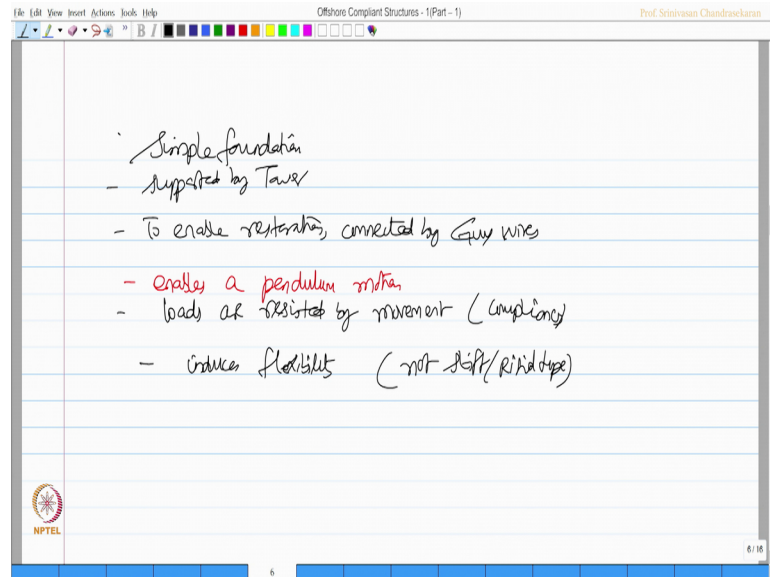 File Edit View Insert Actions Tools Help
Offshore Compliant Structures - 1(Part – 1)
Prof. Srinivasan Chandrasekaran
B I
Simple foundation
- supported by Tower
- To enable restoration, connected by Guy wires
- enables a pendulum motion
- loads are resisted by movement (compliancy)
- induces flexibility (not stiff/Rigid type)
NPTEL
6 / 16
6